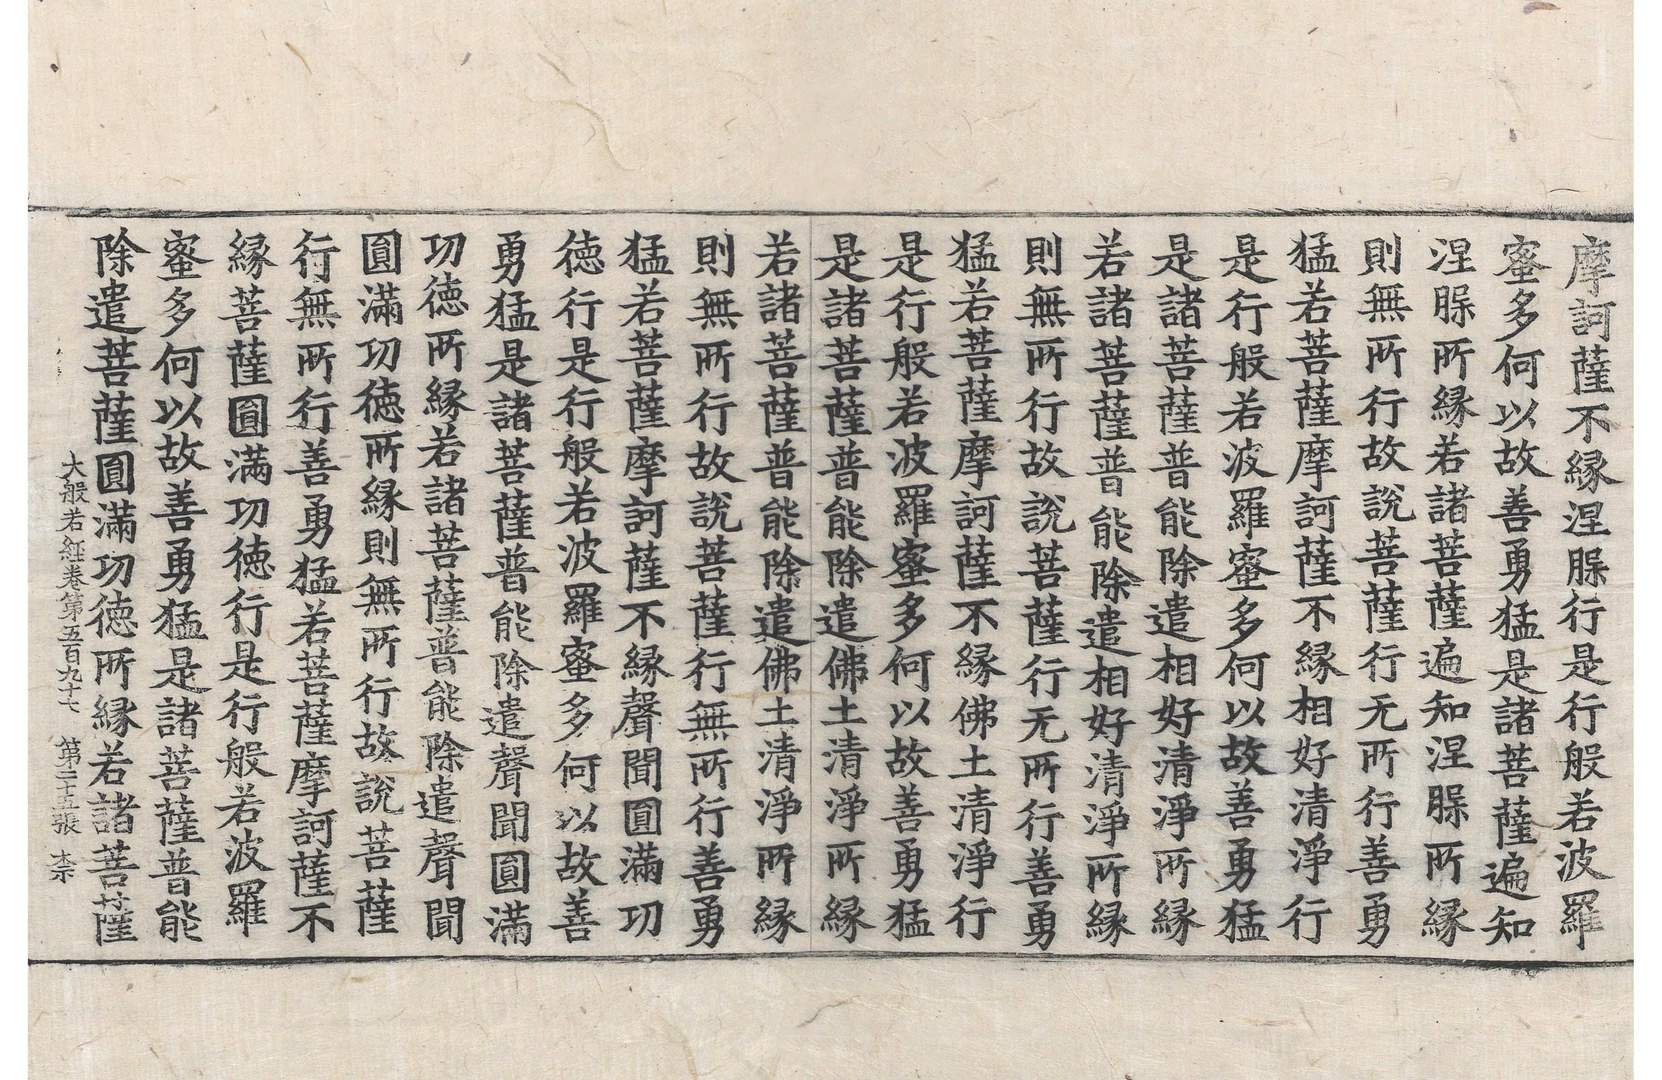 摩訶薩不緣涅槃行是行般若波羅
蜜多何以故善勇猛是諸菩薩遍知
涅槃所緣若諸菩薩遍知涅槃所緣
則無所行故說菩薩行无所行善勇
猛若菩薩摩訶薩不緣相好清淨行
是行般若波羅蜜多何以故善勇猛
是諸菩薩普能除遣相好清淨所緣
若諸菩薩普能除遣相好清淨所緣
則無所行故說菩薩行无所行善勇
猛若菩薩摩訶薩不緣佛土清淨行
是行般若波羅蜜多何以故善勇猛
是諸菩薩普能除遣佛土清淨所緣
若諸菩薩普能除遣佛土清淨所緣
則無所行故說菩薩行無所行善勇
猛若菩薩摩訶薩不緣聲聞圓滿功
德行是行般若波羅蜜多何以故善
勇猛是諸菩薩普能除遣聲聞圓滿
功德所緣若諸菩薩普能除遣聲聞
圓滿功德所緣則無所行故說菩薩
行無所行善勇猛若菩薩摩訶薩不
緣菩薩圓滿功德行是行般若波羅
蜜多何以故善勇猛是諸菩薩普能
除遣菩薩圓滿功德所緣若諸菩薩
大般若経卷第五百九十七 第二十五張 柰